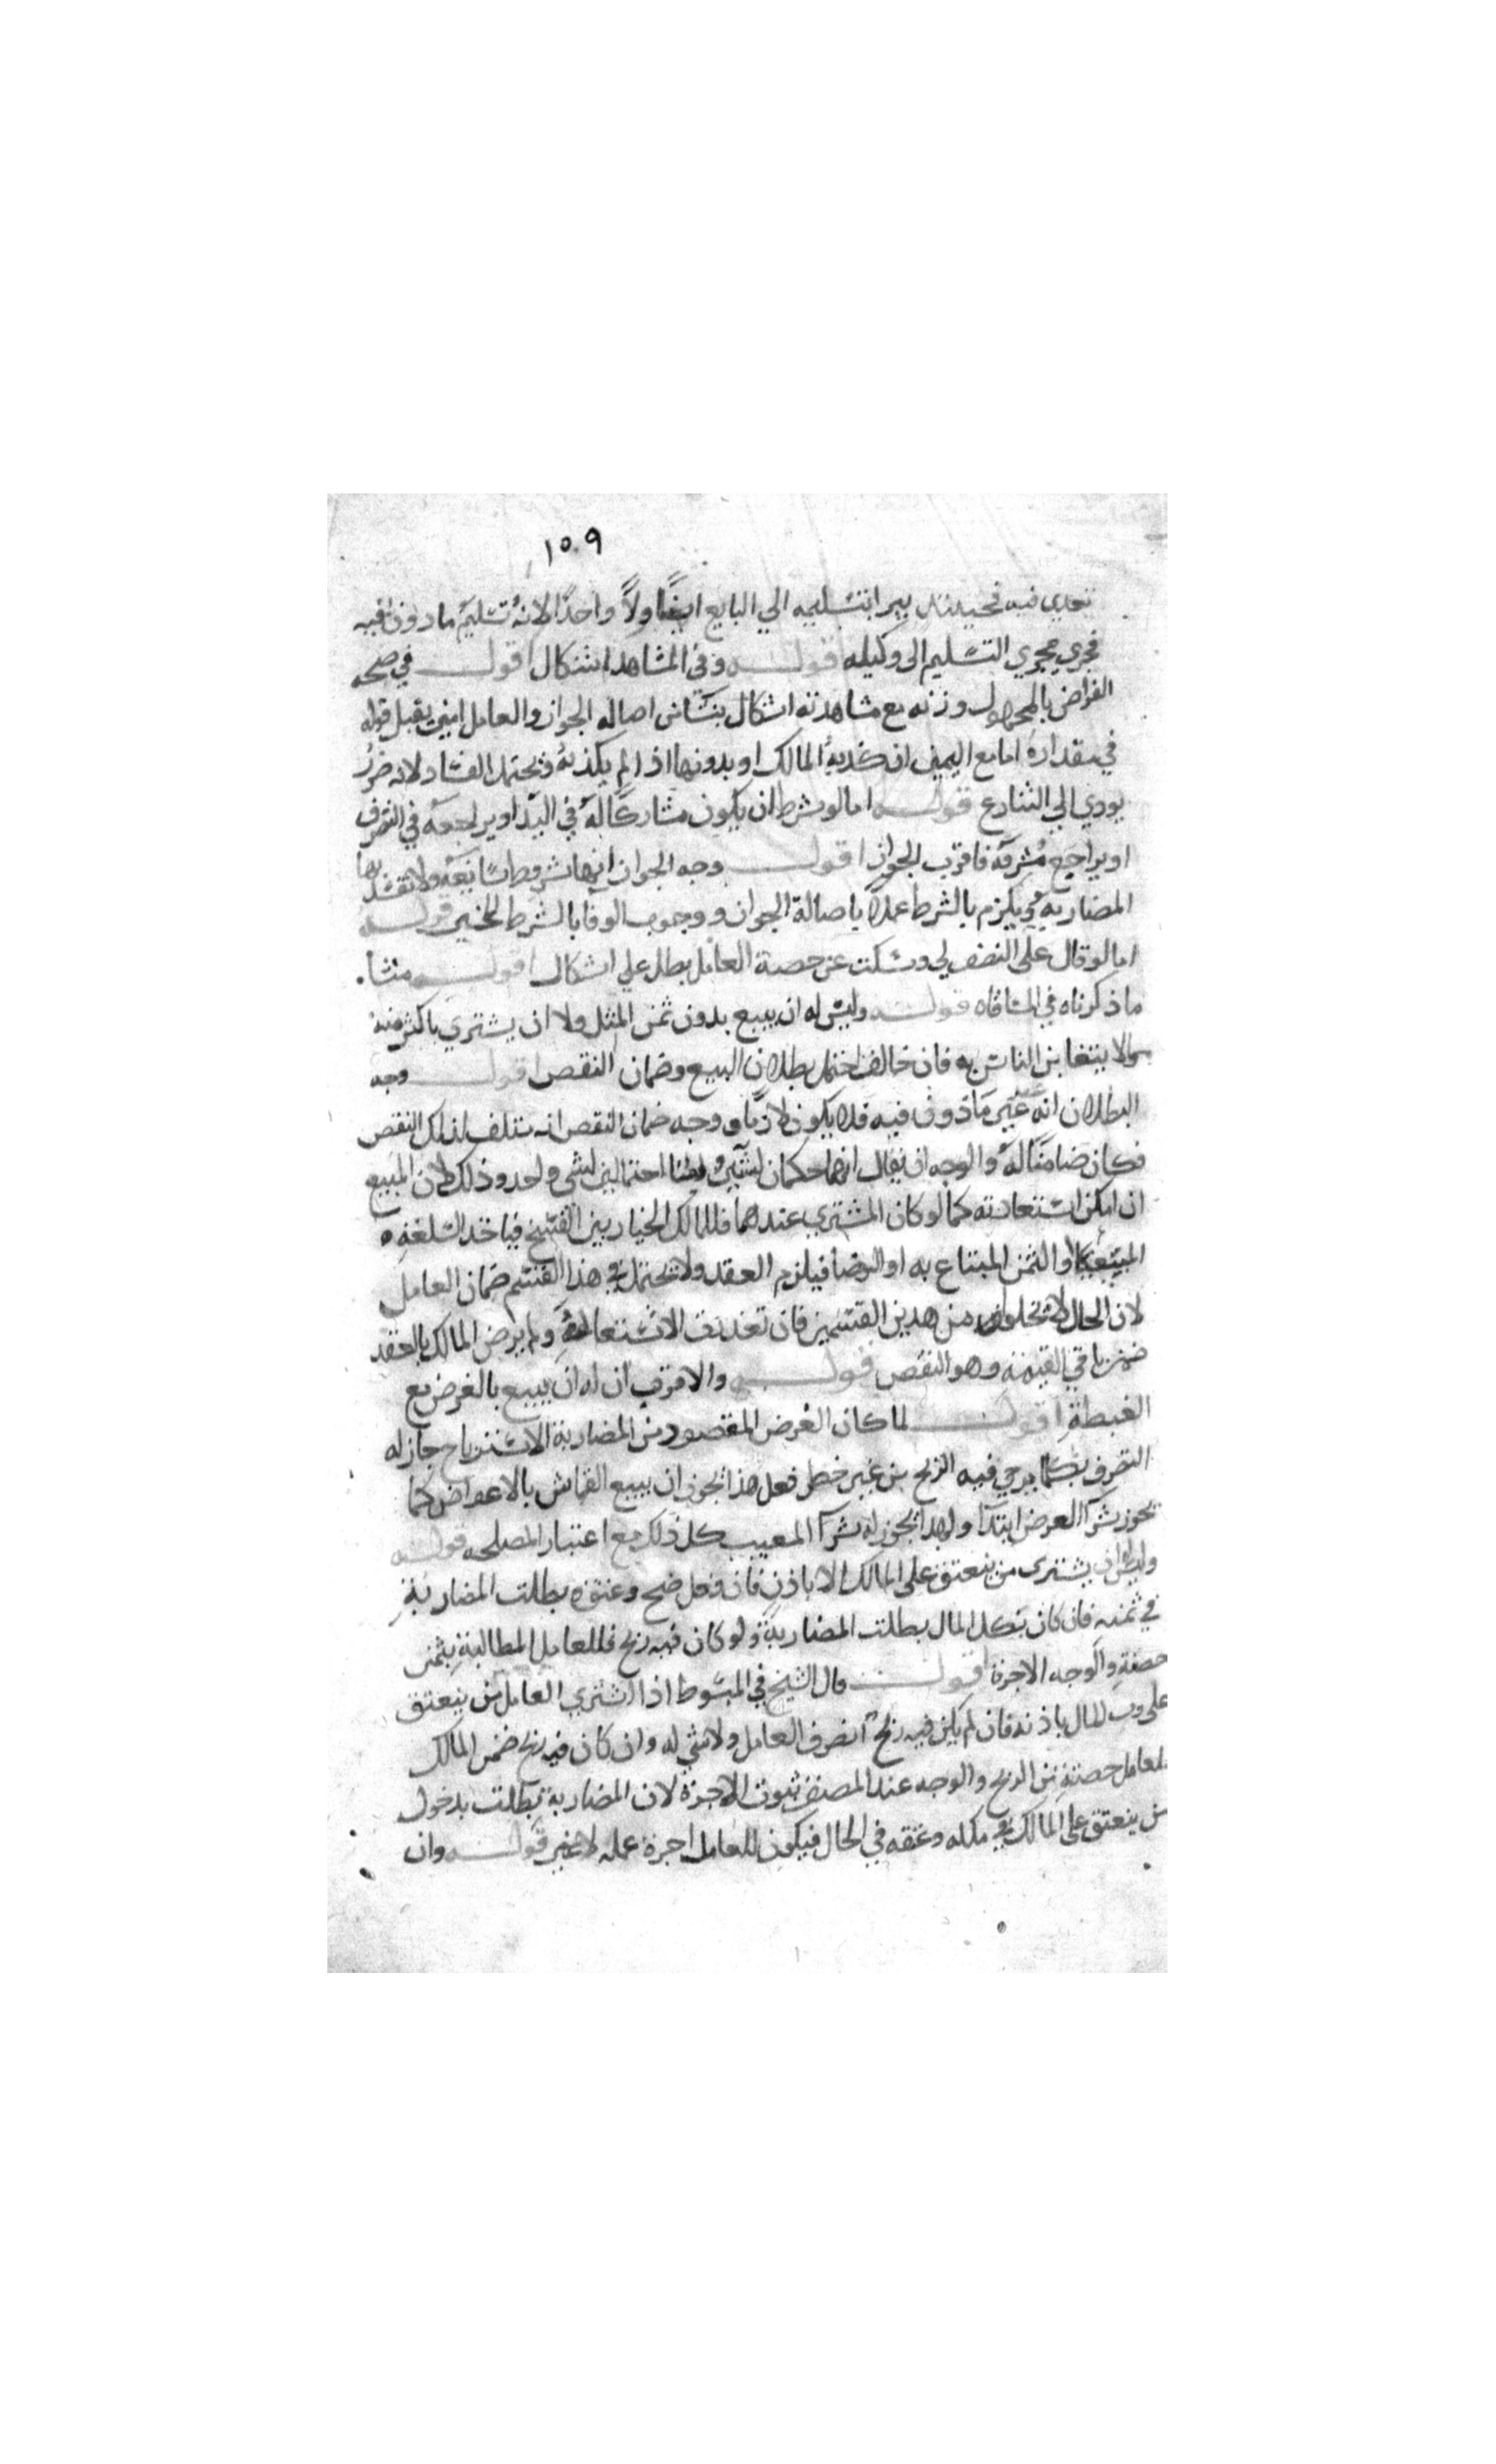 ١٥٠٩
تعدي فيه فحينئذ يبرا بتسليمه الي البايع ايضا ولاً واحدًا لانه تسليم ماذون فيه
فجري مجري التسليم الى وكيله قوله وفي المشاهد اشكال اقول في صحه
القراض بالمجهول وزنه مع مشاهدته اشكال ينشا من اصاله الجواز والعامل امين يقبل قوله
في مقداره اما مع اليمين ان كذبه المالك او بدونها اذا لم يكذبه ويحتمل الفساد لانه غرر
يودي الي التنازع قوله اما لو شرط ان يكون مشاركًا له في اليد او يراجعه في التصرف
او يراجع مشرفه فاقرب الجواز اقول وجه الجواز انها شروط سايغه ولا تفسد بها
المضاربه ويلزم بالشرط عملا باصالة الجواز ووجوب الوفا بالشرط للخبر قوله
اما لو قال على النصف لي وسكت عن حصة العامل بطل علي اشكال اقول منشا
ما ذكرناه في المساقاه قوله وليس له ان يبيع بدون ثمن المثل ولا ان يشتري باكثر منه
مما لا يتغابن الناس به فان خالف احتمل بطلان البيع وضمان النقص اقول وجه
البطلان انه غير ماذون فيه فلا يكون لازمًا ووجه ضمان النقص انه متلف لذلك النقص
فكان ضامنًا له والوجه ان يقال انهما حكمان لشيئين وليسا احتمالين لشي واحد وذلك لان المبيع
ان امكن استعادته كما لو كان المشتري عندهما فللمالك الخيار بين الفسخ فياخذ السلعه
المبيعه او الثمن المبتاع به او الرضا فيلزم العقد ولا يحتمل في هذا القسم ضمان العامل
لان الحال لا تخلوا من هذين القسمين فان تعذرت الاستعاده ولم يرض المالك بالعقد
ضمن باقي القيمة وهو النقص قوله والاقرب ان له ان يبيع بالعرض مع
الغبطة اقول لما كان الغرض المقصود من المضاربة الاسترباح جاز له
التصرف بكلما يرجي فيه الربح من غير خطر فعل هذا يجوز ان يبيع القماش بالاعواض كما
يجوز شرا العرض ابتدا ولهذا يجوز له شرا المعيب كل ذلك مع اعتبار المصلحه قوله
وليس له ان يشتري من ينعتق على المالك الا باذن فان فعل صح وعتق وبطلت المضاربة
في ثمنه فان كان بكل المال بطلت المضاربة ولو كان فيه ربح فللعامل المطالبة بثمن
حصته والوجه الاجرة اقول قال الشيخ في المبسوط اذا اشتري العامل من ينعتق
على رب المال باذنه فان لم يكن فيه ربح انصرف العامل ولا شي له وان كان فيه ربح ضمن المالك
للعامل حصته من الربح والوجه عند المصنف ثبوت الاجرة لان المضاربة بطلت بدخول
من ينعتق على المالك في ملكه وعتقه في الحال فيكون للعامل اجرة عمله لا غير قوله وان